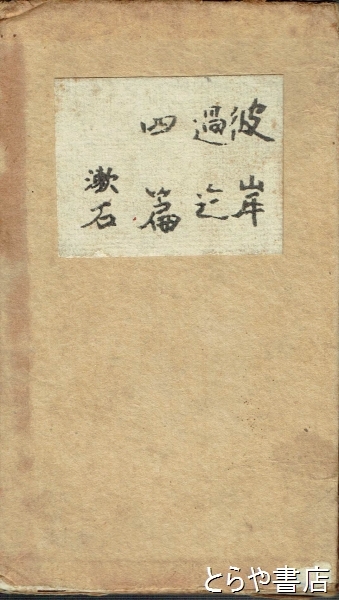 彼岸
過迄
四篇
漱石
とらや書店